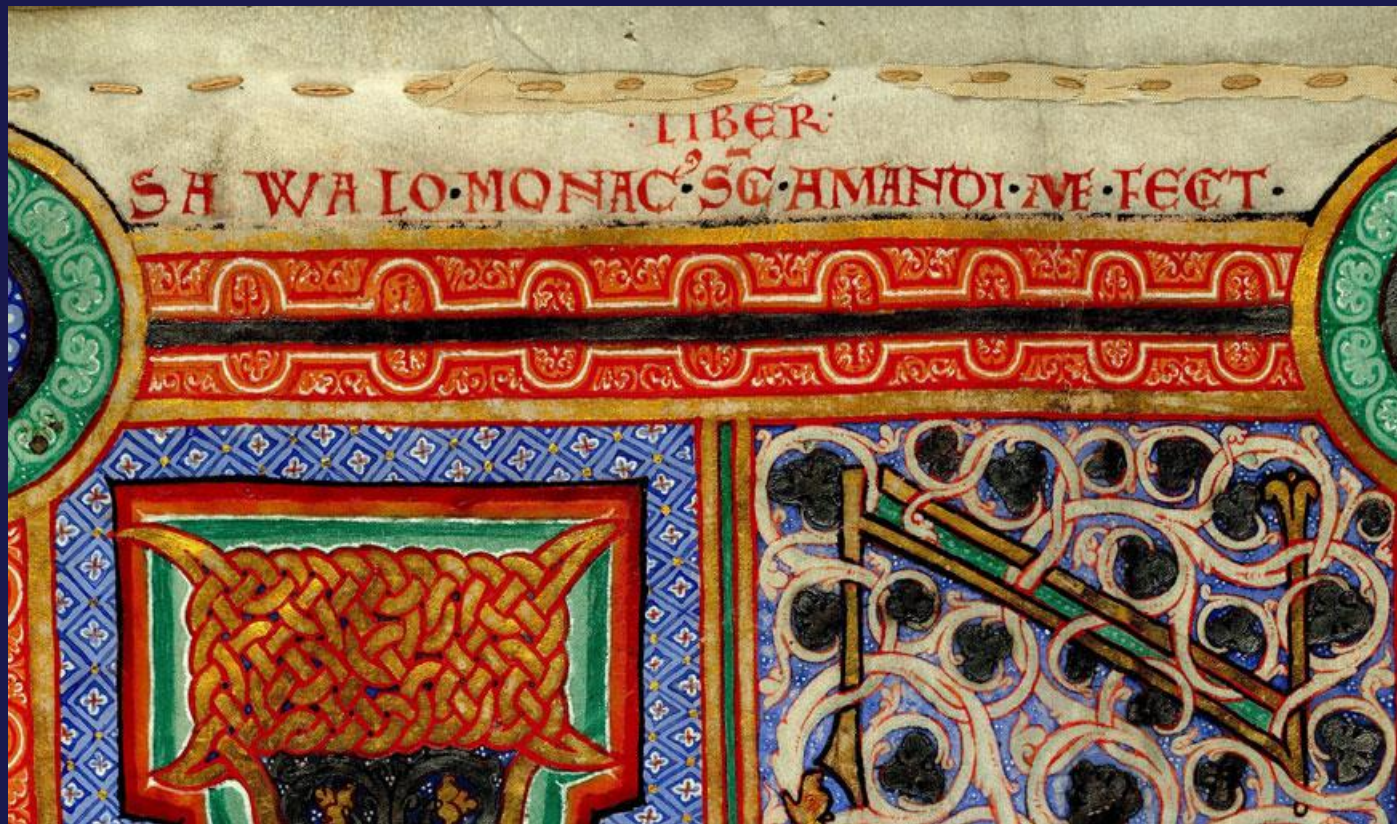 · LIBER ·
SAWALO · MONAC⁹ · S̄C̄I · AMANDI · ME · FECIT ·
IN